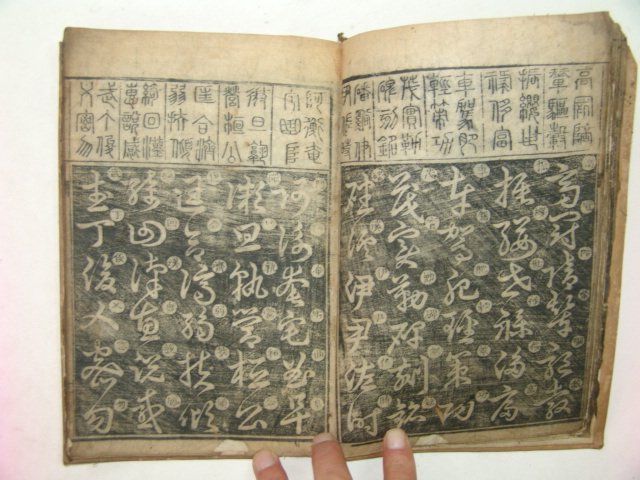 高冠陪
輦驅轂
振纓世
祿侈富
車駕肥
輕策功
茂實勒
碑刻銘
磻溪伊
尹佐時
高冠陪輦驅轂
振纓世祿侈富
車駕肥輕策功
茂實勒碑刻銘
磻溪伊尹佐時
阿衡奄
宅曲阜
微旦孰
營桓公
匡合濟
弱扶傾
綺回漢
惠說感
武丁俊
乂密勿
阿衡奄宅曲阜
微旦孰營桓公
匡合濟弱扶傾
綺回漢惠說感
武丁俊乂密勿